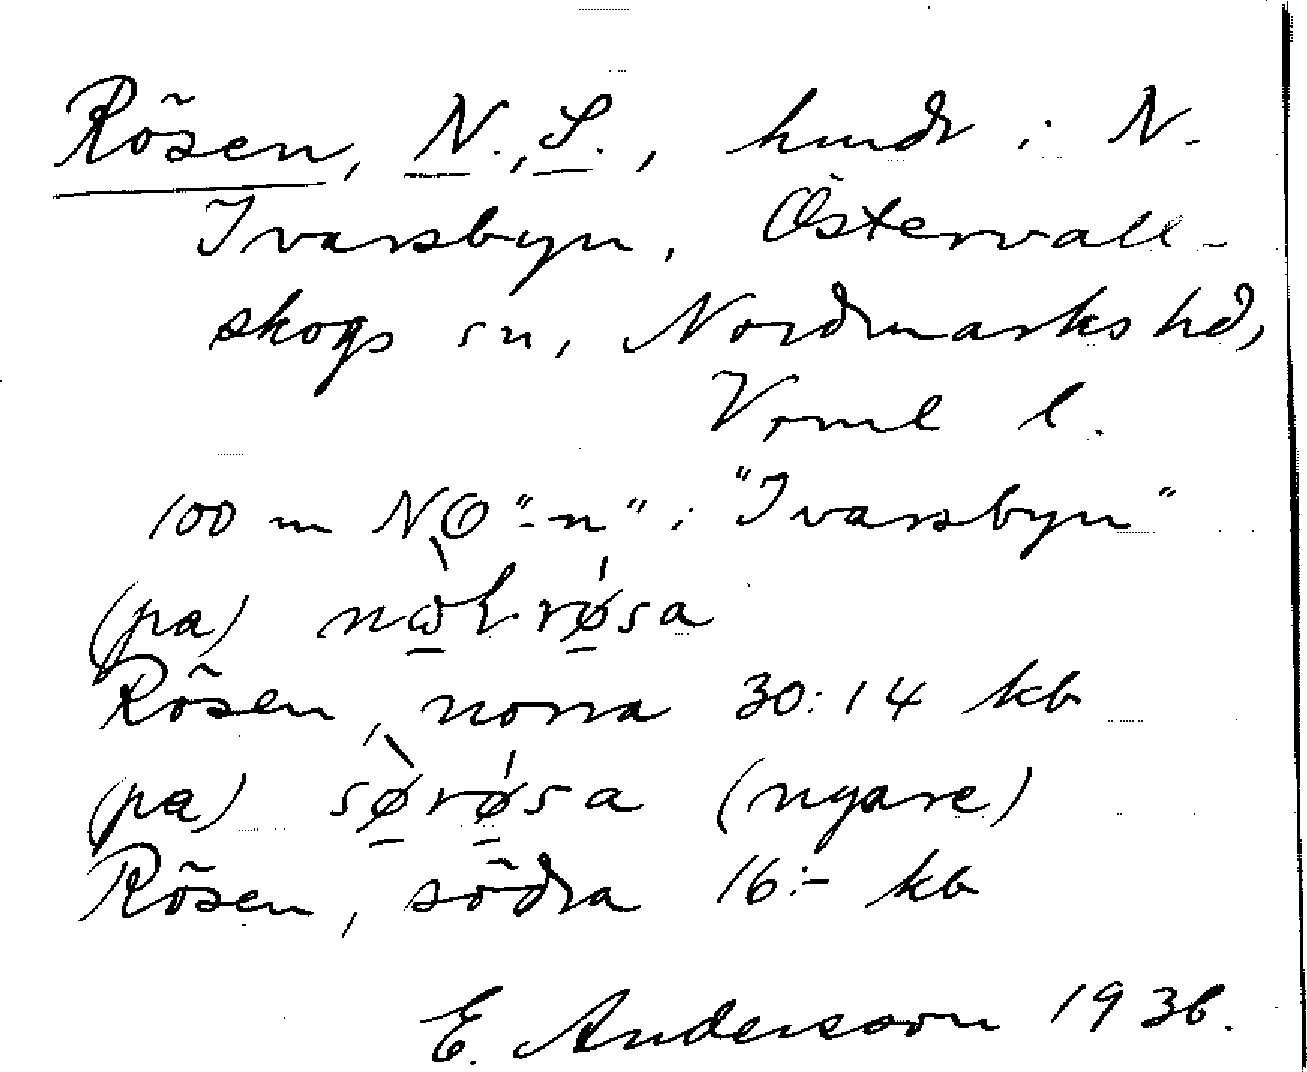 Rösen, N., S., hmdr i N.
Ivarsbyn, Östervall-
skogs sn, Nordmarks hd,
Vrml l.
100 m NO "-n" i "Ivarsbyn"
(pa) rösa
Rösen, norra 30:14 kb
(pa) sø̀rǿsa (nyare)
Rösen, södra 16:- kb
E. Anderson 1936.